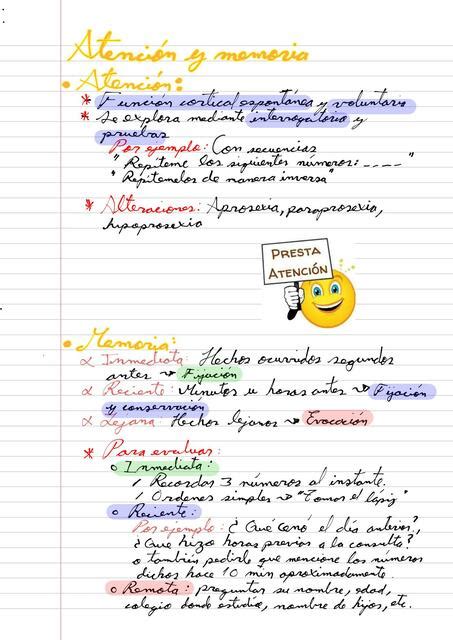 Atención y memoria
• Atención:
* Función cortical espontánea y voluntario
* Se explora mediante interrogatorio y
pruebas
Por ejemplo: Con secuencias
"Repíteme los siguientes números: ____"
"Repítemelos de manera inversa"
* Alteraciones: Aprosexia, paraprosexia,
hipoprosexia
PRESTA
ATENCIÓN
• Memoria:
α Inmediata: Hechos ocurridos segundos
antes → Fijación
α Reciente: Minutos u horas antes → Fijación
y conservación
α Lejana: Hechos lejanos → Evocación
* Para evaluar:
o Inmediata:
/ Recordar 3 números al instante.
/ Ordenes simples → "Tomar el lápiz"
o Reciente:
Por ejemplo: ¿Qué cenó el día anterior?,
¿Qué hizo horas previas a la consulta?
o también pedirle que mencione los números
dichos hace 10 min aproximadamente.
o Remota: preguntar su nombre, edad,
colegio donde estudia, nombre de hijos, etc.